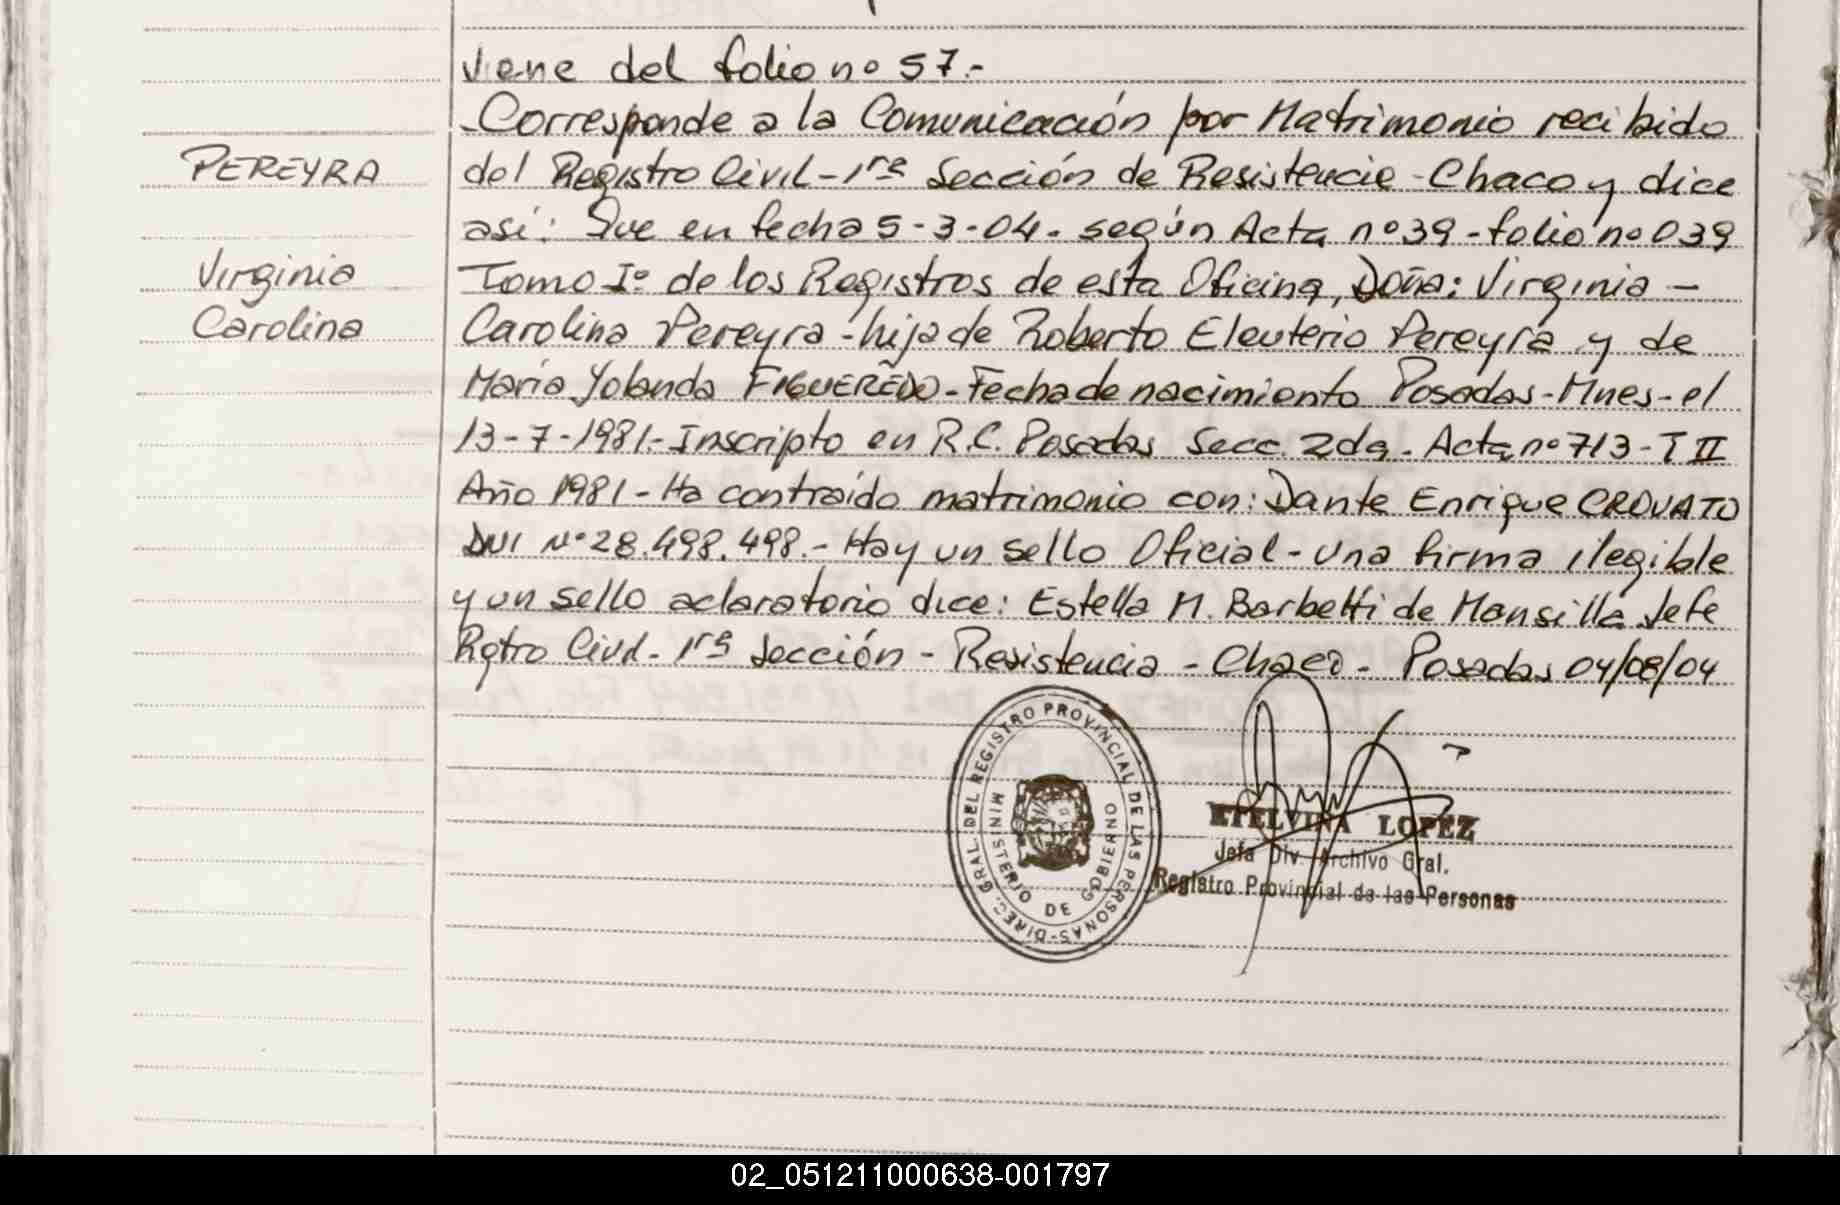 viene del folio nº 57.-
PEREYRA
Virginia
Carolina
-Corresponde a la Comunicación por Matrimonio recibido
del Registro Civil-1ra Sección de Resistencia-Chaco y dice
así: Que en fecha 5-3-04. según Acta nº39-folio nº 039
Tomo Iº de los Registros de esta Oficina, Doña: Virginia -
Carolina Pereyra-hija de Roberto Eleuterio Pereyra y de
María Yolanda FIGUEREDO-Fecha de nacimiento Posadas-Mnes-el
13-7-1981.-Inscripto en R.C. Posadas Secc. 2da. Acta nº 713-T II
Año 1981-Ha contraído matrimonio con: Dante Enrique CROVATO
DNI Nº 28.498.498.-Hay un sello Oficial-una firma ilegible
y un sello aclaratorio dice: Estella M. Barbetti de Mansilla Jefe
Rgtro Civil-1ra Sección-Resistencia-Chaco-Posadas 04/08/04
DIREC. GRAL. DEL REGISTRO PROVINCIAL DE LAS PERSONAS-
MINISTERIO DE GOBIERNO
ETELVINA LOPEZ
Jefa Div. Archivo Gral.
Registro Provincial de las Personas
02_051211000638-001797